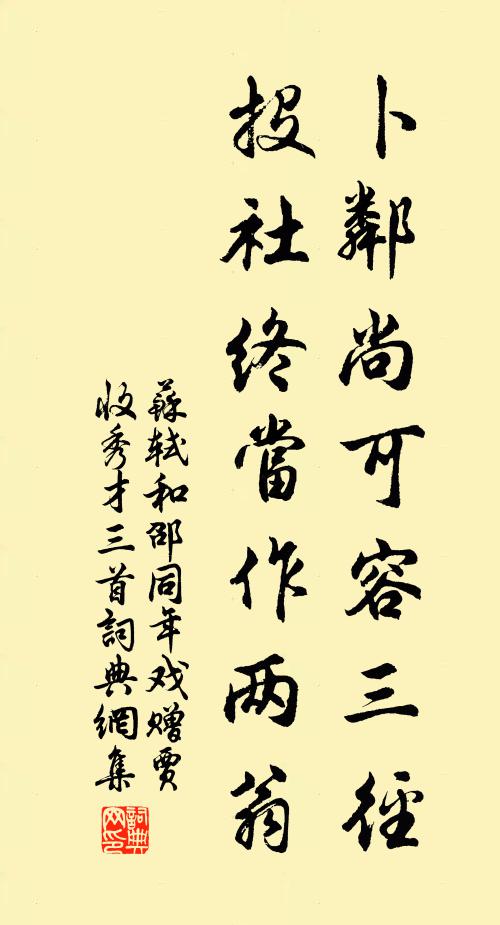 卜鄰尚可容三徑
投社終當作兩翁
蘇軾和邵同年戏贈賈
收秀才三首詞典網集
詞典
网印